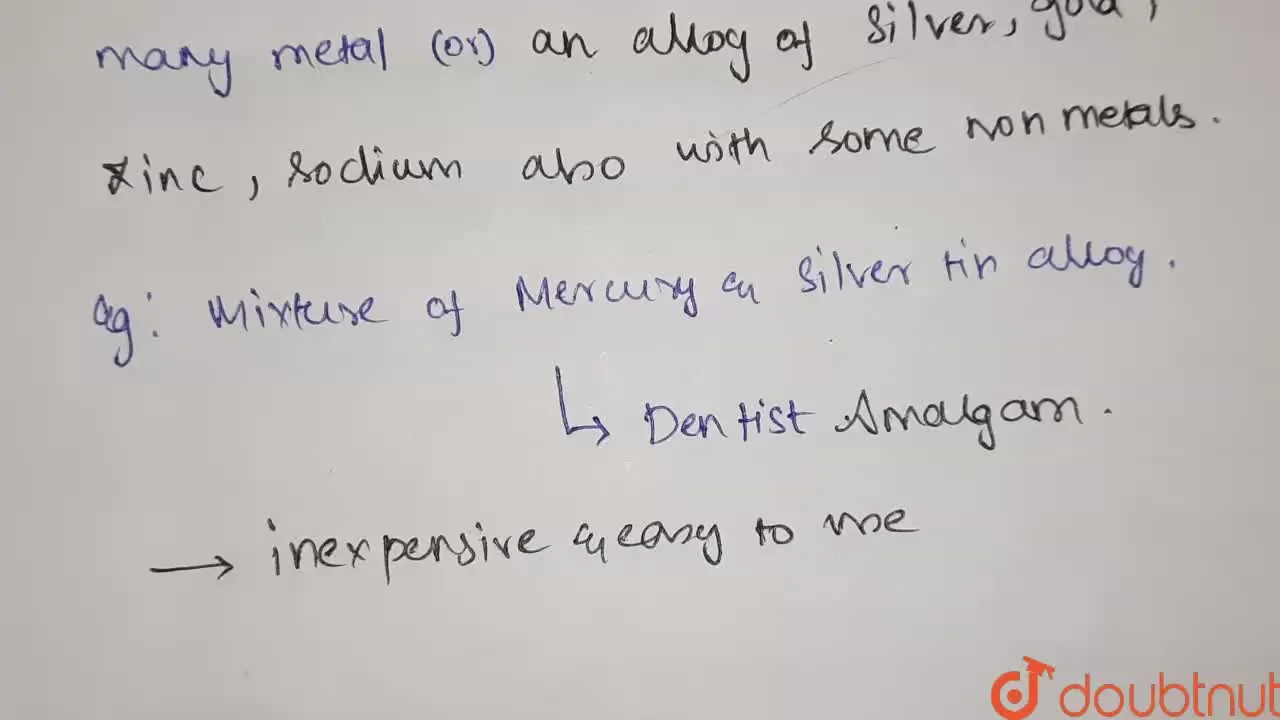 many metal (or) an alloy of silver, gold,
zinc, sodium also with some non metals.
eg: Mixture of Mercury & silver tin alloy.
↳ Dentist Amalgam.
→ inexpensive & easy to use
doubtnut